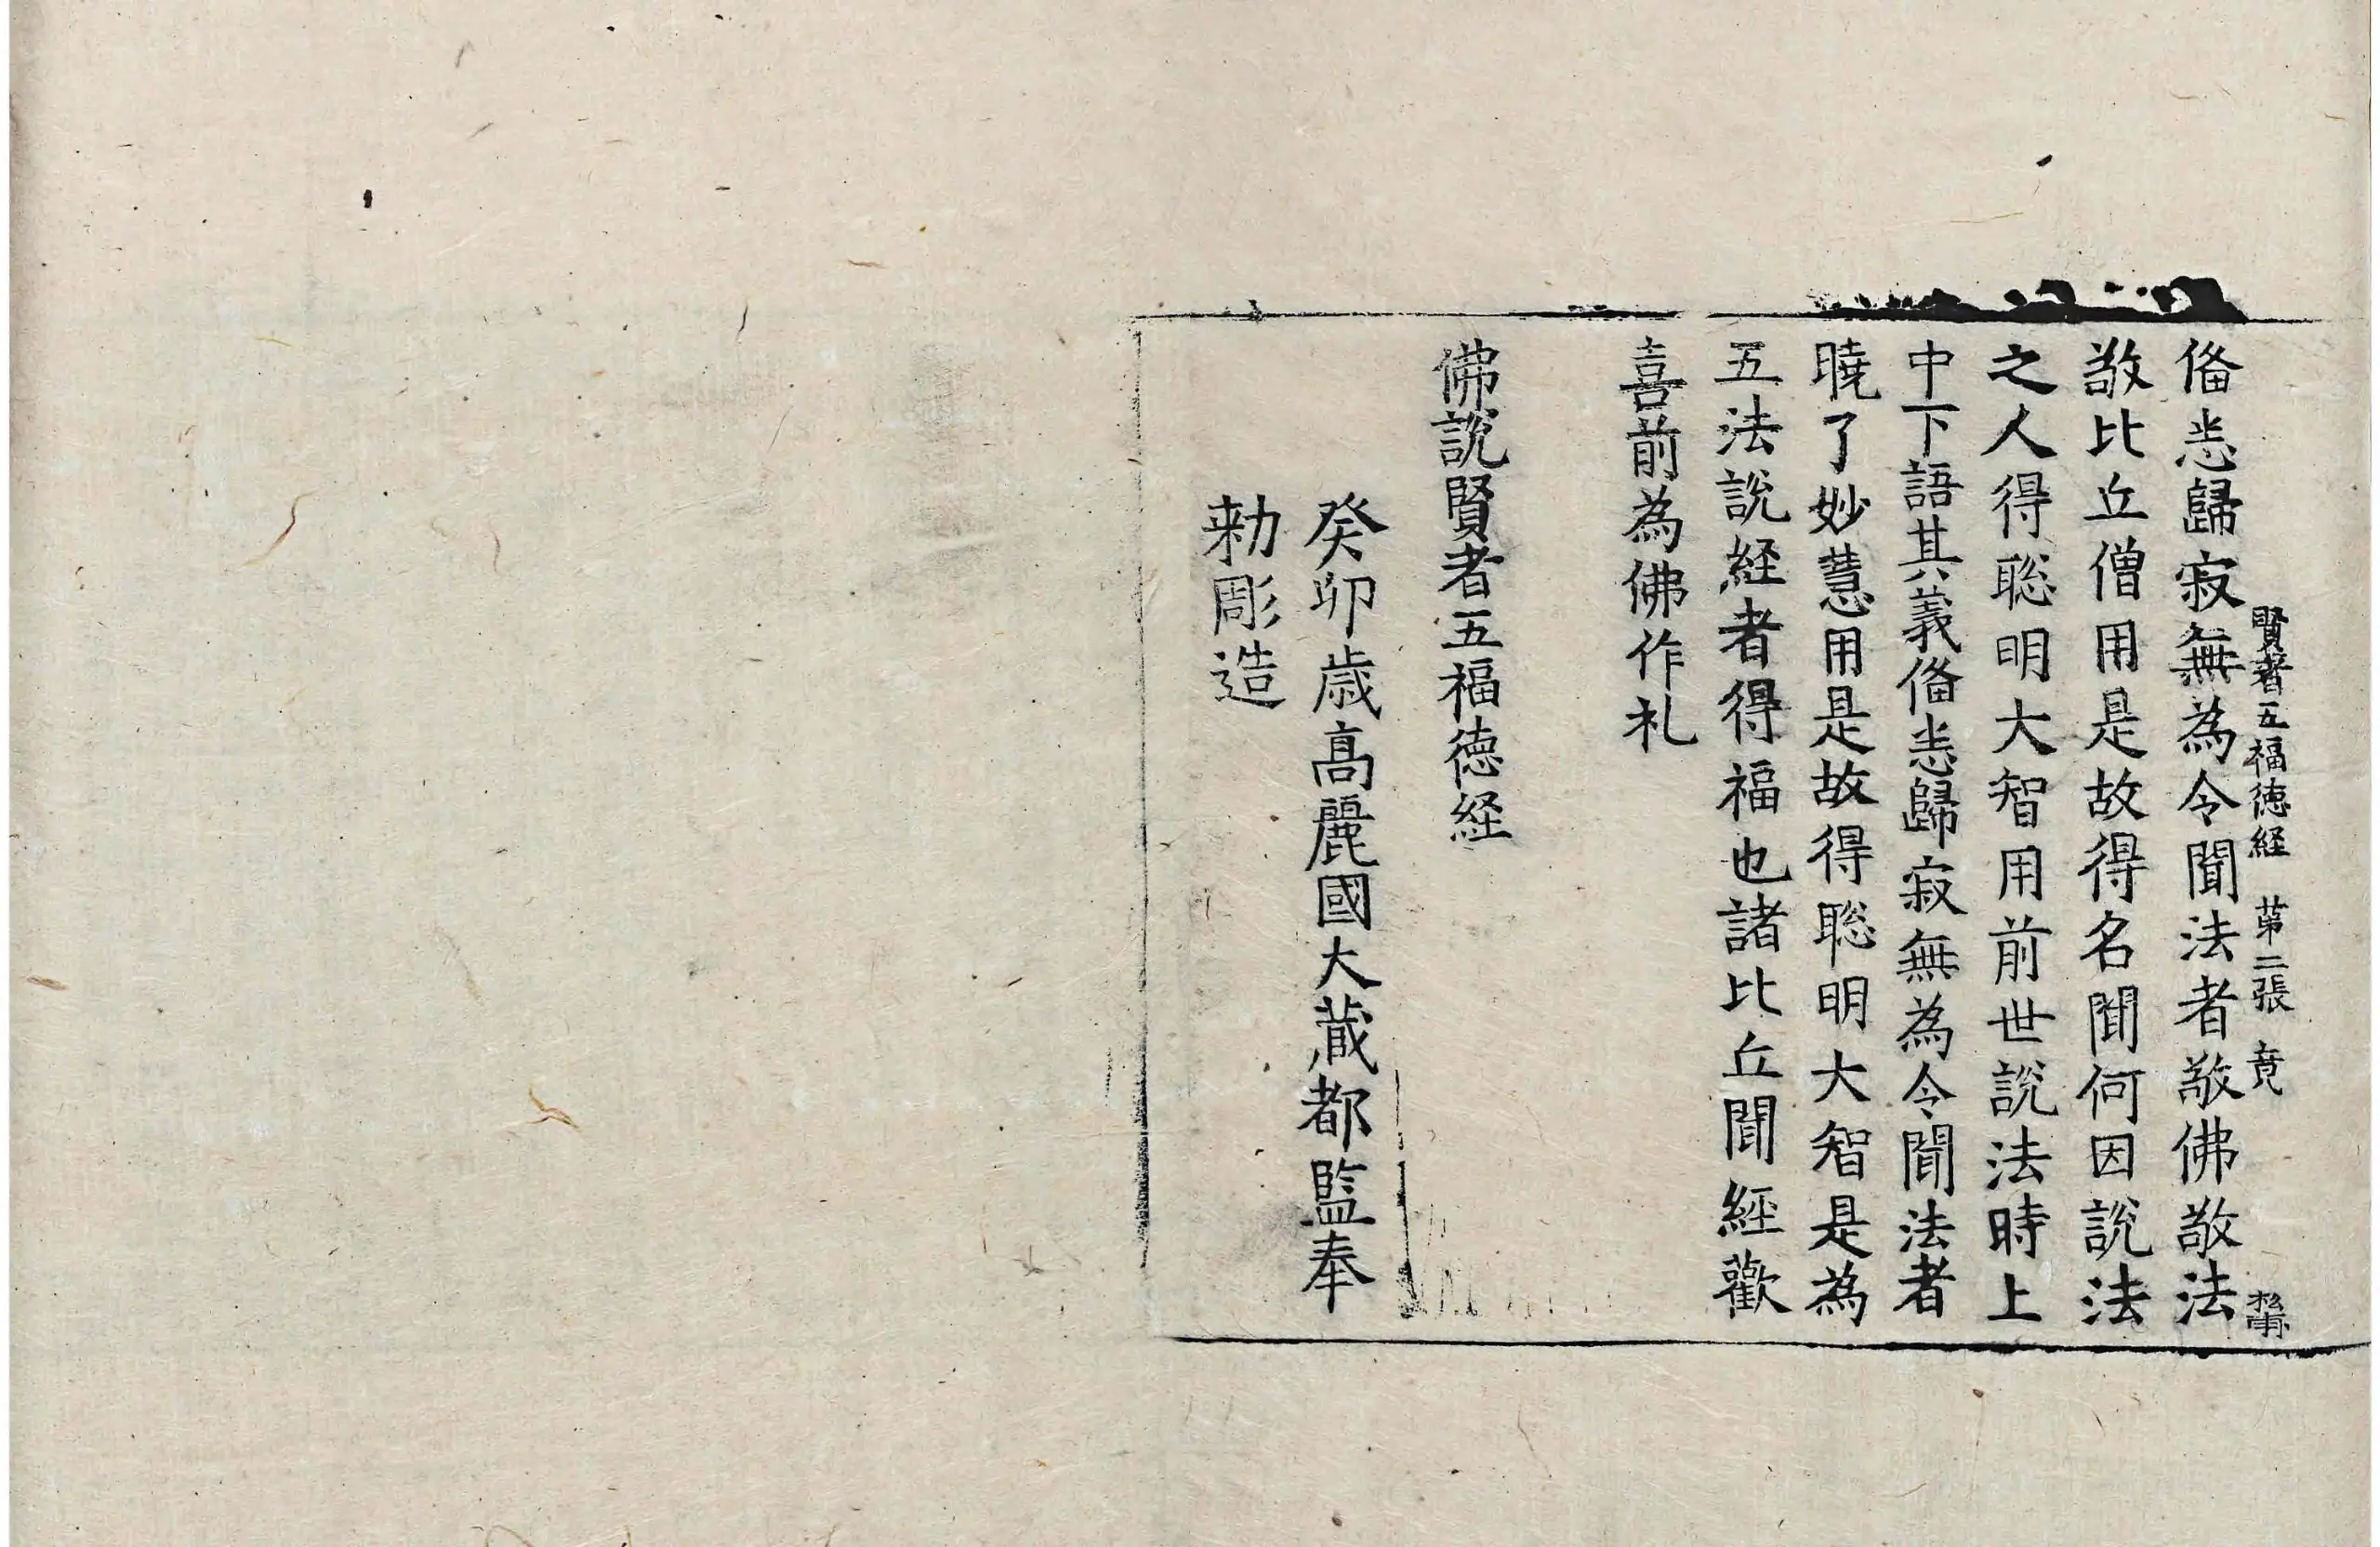 賢者五福徳経　苐二張　竟
俻恙歸寂無為令聞法者敬佛敬法
敬比丘僧用是故得名聞何因說法
之人得聡明大智用前世說法時上
中下語其義俻恙歸寂無為令聞法者
曉了妙慧用是故得聡明大智是為
五法說経者得福也諸比丘聞經歡
喜前為佛作礼
佛說賢者五福徳経
癸卯歳高麗國大蔵都監奉
勅彫造